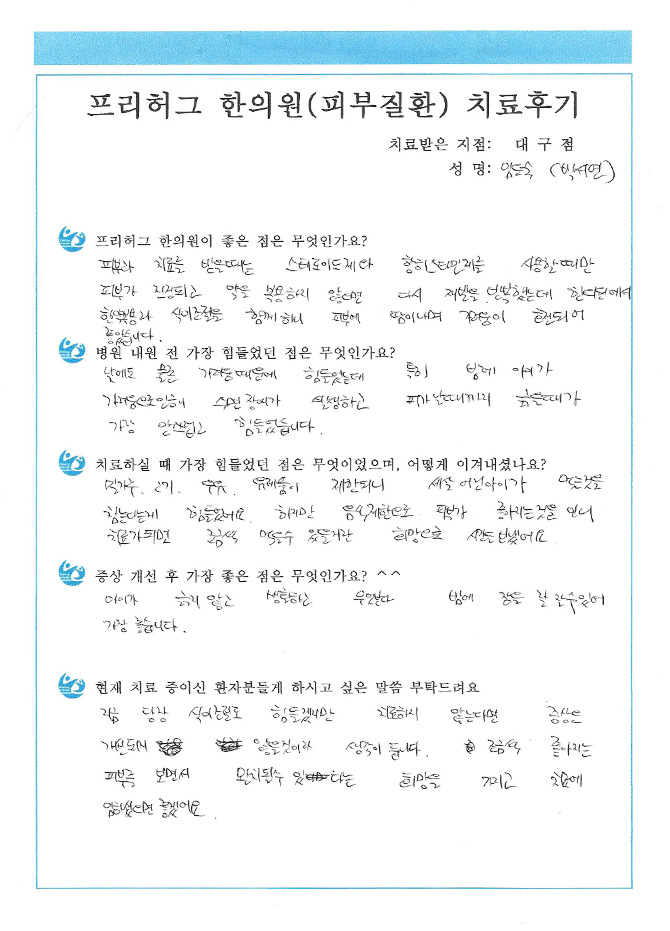 프리허그 한의원(피부질환) 치료후기
치료받은 지점: 대구점
성 명: (박서연)
프리허그 한의원이 좋은 점은 무엇인가요?
피부과 치료를 받을때는 스테로이드제와 항히스타민제를 사용할때만
피부가 진정되고 약을 복용하지 않으면 다시 재발을 반복했는데 한의원에서
한약복용과 식이조절을 함께 하니 피부에 땀이나며 호전되어
좋았습니다.
병원 내원 전 가장 힘들었던 점은 무엇인가요?
낮에도 물론 가려움때문에 힘들었는데 특히 밤에 아이가
가려움으로인하여 수면장애가 발생하고 피가날때까지 긁을때가
가장 안쓰럽고 힘들었습니다.
치료하실 때 가장 힘들었던 점은 무엇이었으며, 어떻게 이겨내셨나요?
밀가루, 고기, 우유, 유제품이 제한되니 세살 어린아이가 먹는것을
참는다는게 힘들었어요. 하지만 음식제한으로 피부가 좋아지는것을 보니
치료가되면 조금씩 먹을수 있을거란 희망으로
증상 개선 후 가장 좋은 점은 무엇인가요? ^^
아이가 긁지 않고 생활하고 무엇보다 밤에 잠을 잘 잘수있어
가장 좋습니다.
현재 치료 중이신 환자분들게 하시고 싶은 말씀 부탁드려요
지금 당장 식이조절로 힘들겠지만 치료하지 않는다면 증상은
개선되지 않을것이라 생각이 듭니다. 조금씩 좋아지는
피부를 보면서 완치될수 있다는 희망을 가지고 치료에
임하셨으면 좋겠어요.